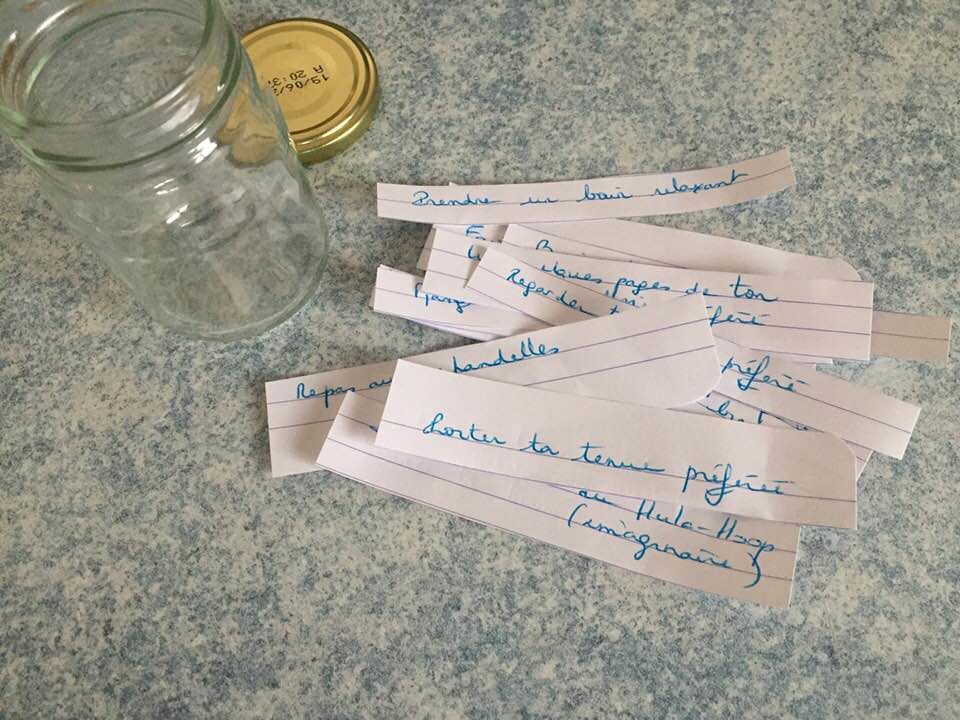 19/06/
A 20:3
Prendre un bain relaxant
ques pages de ton
Regarder
préféré
Mang
Repas au
handelles
préféré
Porter ta tenue préférée
au Hula-Hoop
(imaginaire)